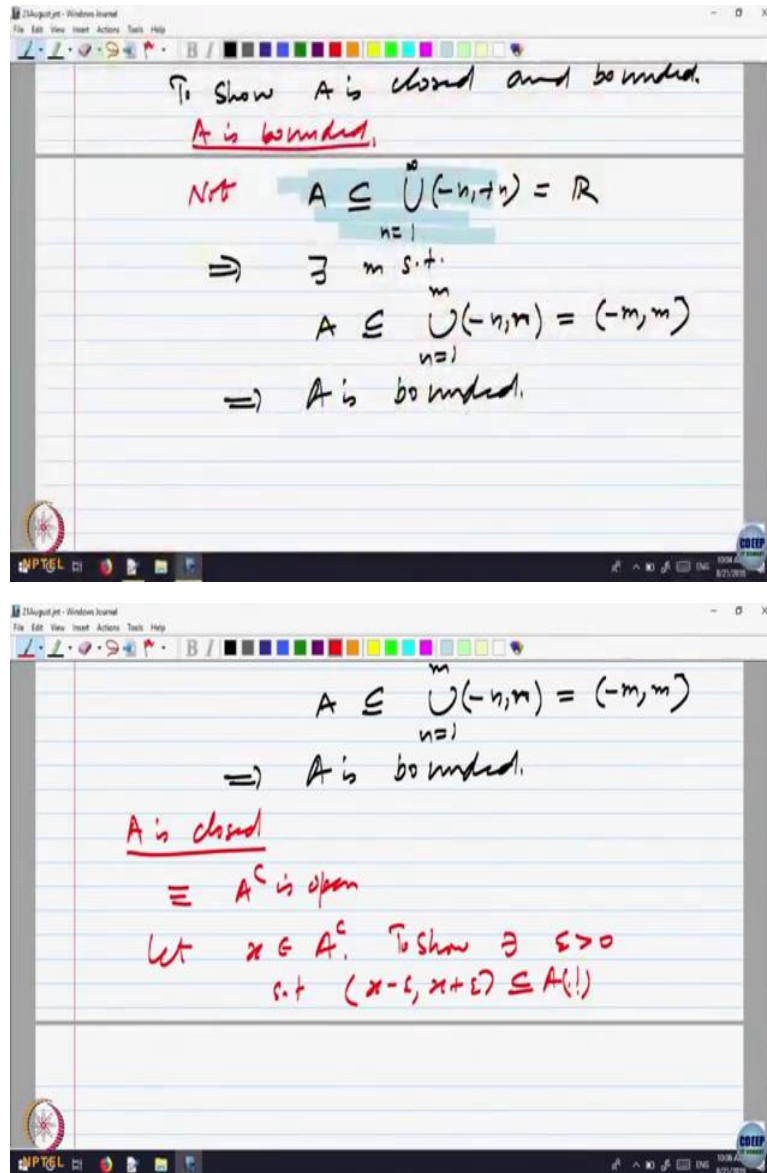 21August.jnt - Windows Journal
File Edit View Insert Actions Tools Help
B I
To Show A is closed and bounded.
A is bounded.
Not A ⊆ ∪(-n,+n) = R
∞
n=1
⇒ ∃ m s.t.
A ⊆ ∪(-n,n) = (-m,m)
m
n=1
⇒ A is bounded.
NPTEL
CDEEP
ENG
8/21/2019
21August.jnt - Windows Journal
File Edit View Insert Actions Tools Help
B I
A ⊆ ∪(-n,n) = (-m,m)
m
n=1
⇒ A is bounded.
A is closed
≡ A^c is open
Let x ∈ A^c. To Show ∃ ε>0
s.t (x-ε, x+ε) ⊆ A(!)
NPTEL
CDEEP
ENG